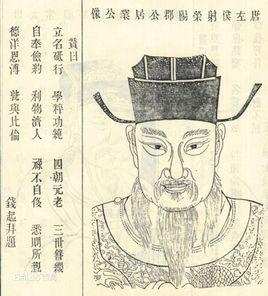 唐左僕射滎陽郡公居業公像
贊曰
立名砥行 學粹功純 四朝元老 三世簪纓
自奉儉約 利物濟人 祿不自侈 悉周所親
德洋恩溥 孰與比倫
錢起拜題